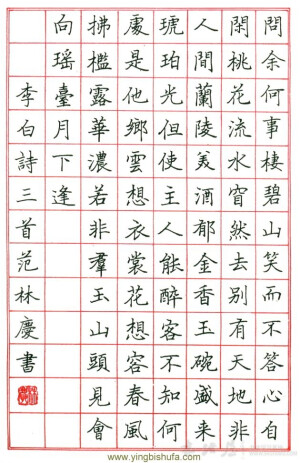 問余何事棲碧山笑而不答心自
閑桃花流水窅然去別有天地非
人間蘭陵美酒郁金香玉碗盛来
琥珀光但使主人能醉客不知何
處是他鄉雲想衣裳花想容春風
拂檻露華濃若非羣玉山頭見會
向瑶臺月下逢
李白詩三首范林慶書
www.yingbishufa.com